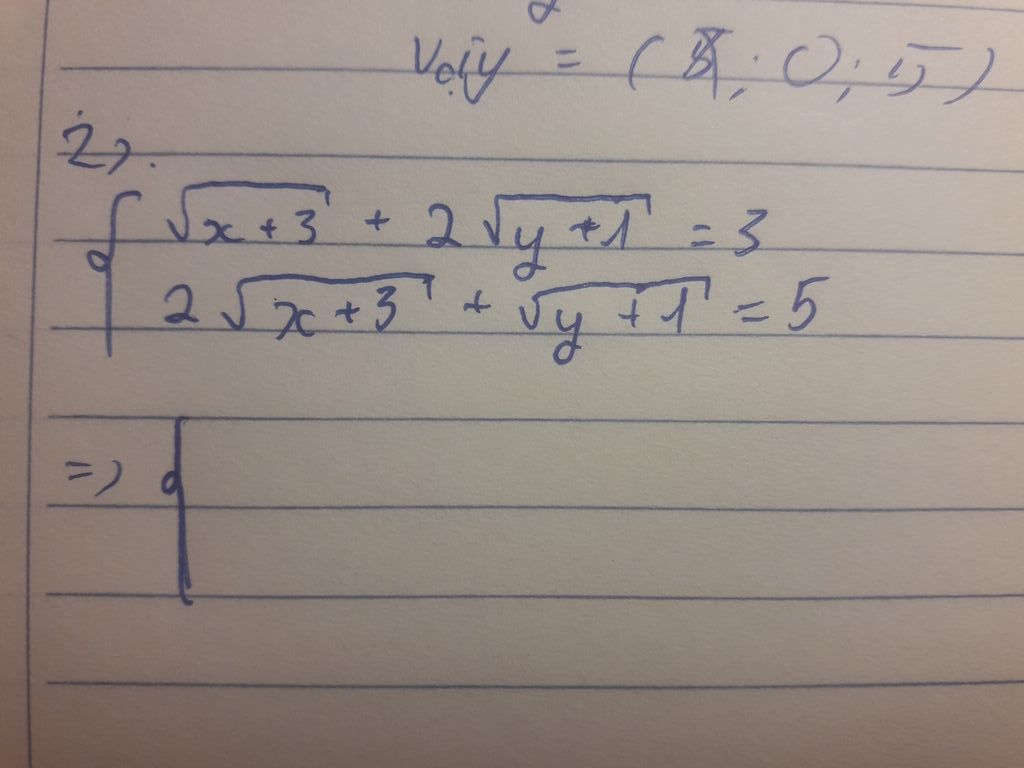 Vậy = ( ; 0 ; 5 )
2).
√x+3 + 2√y+1 = 3
2√x+3 + √y+1 = 5
=> {